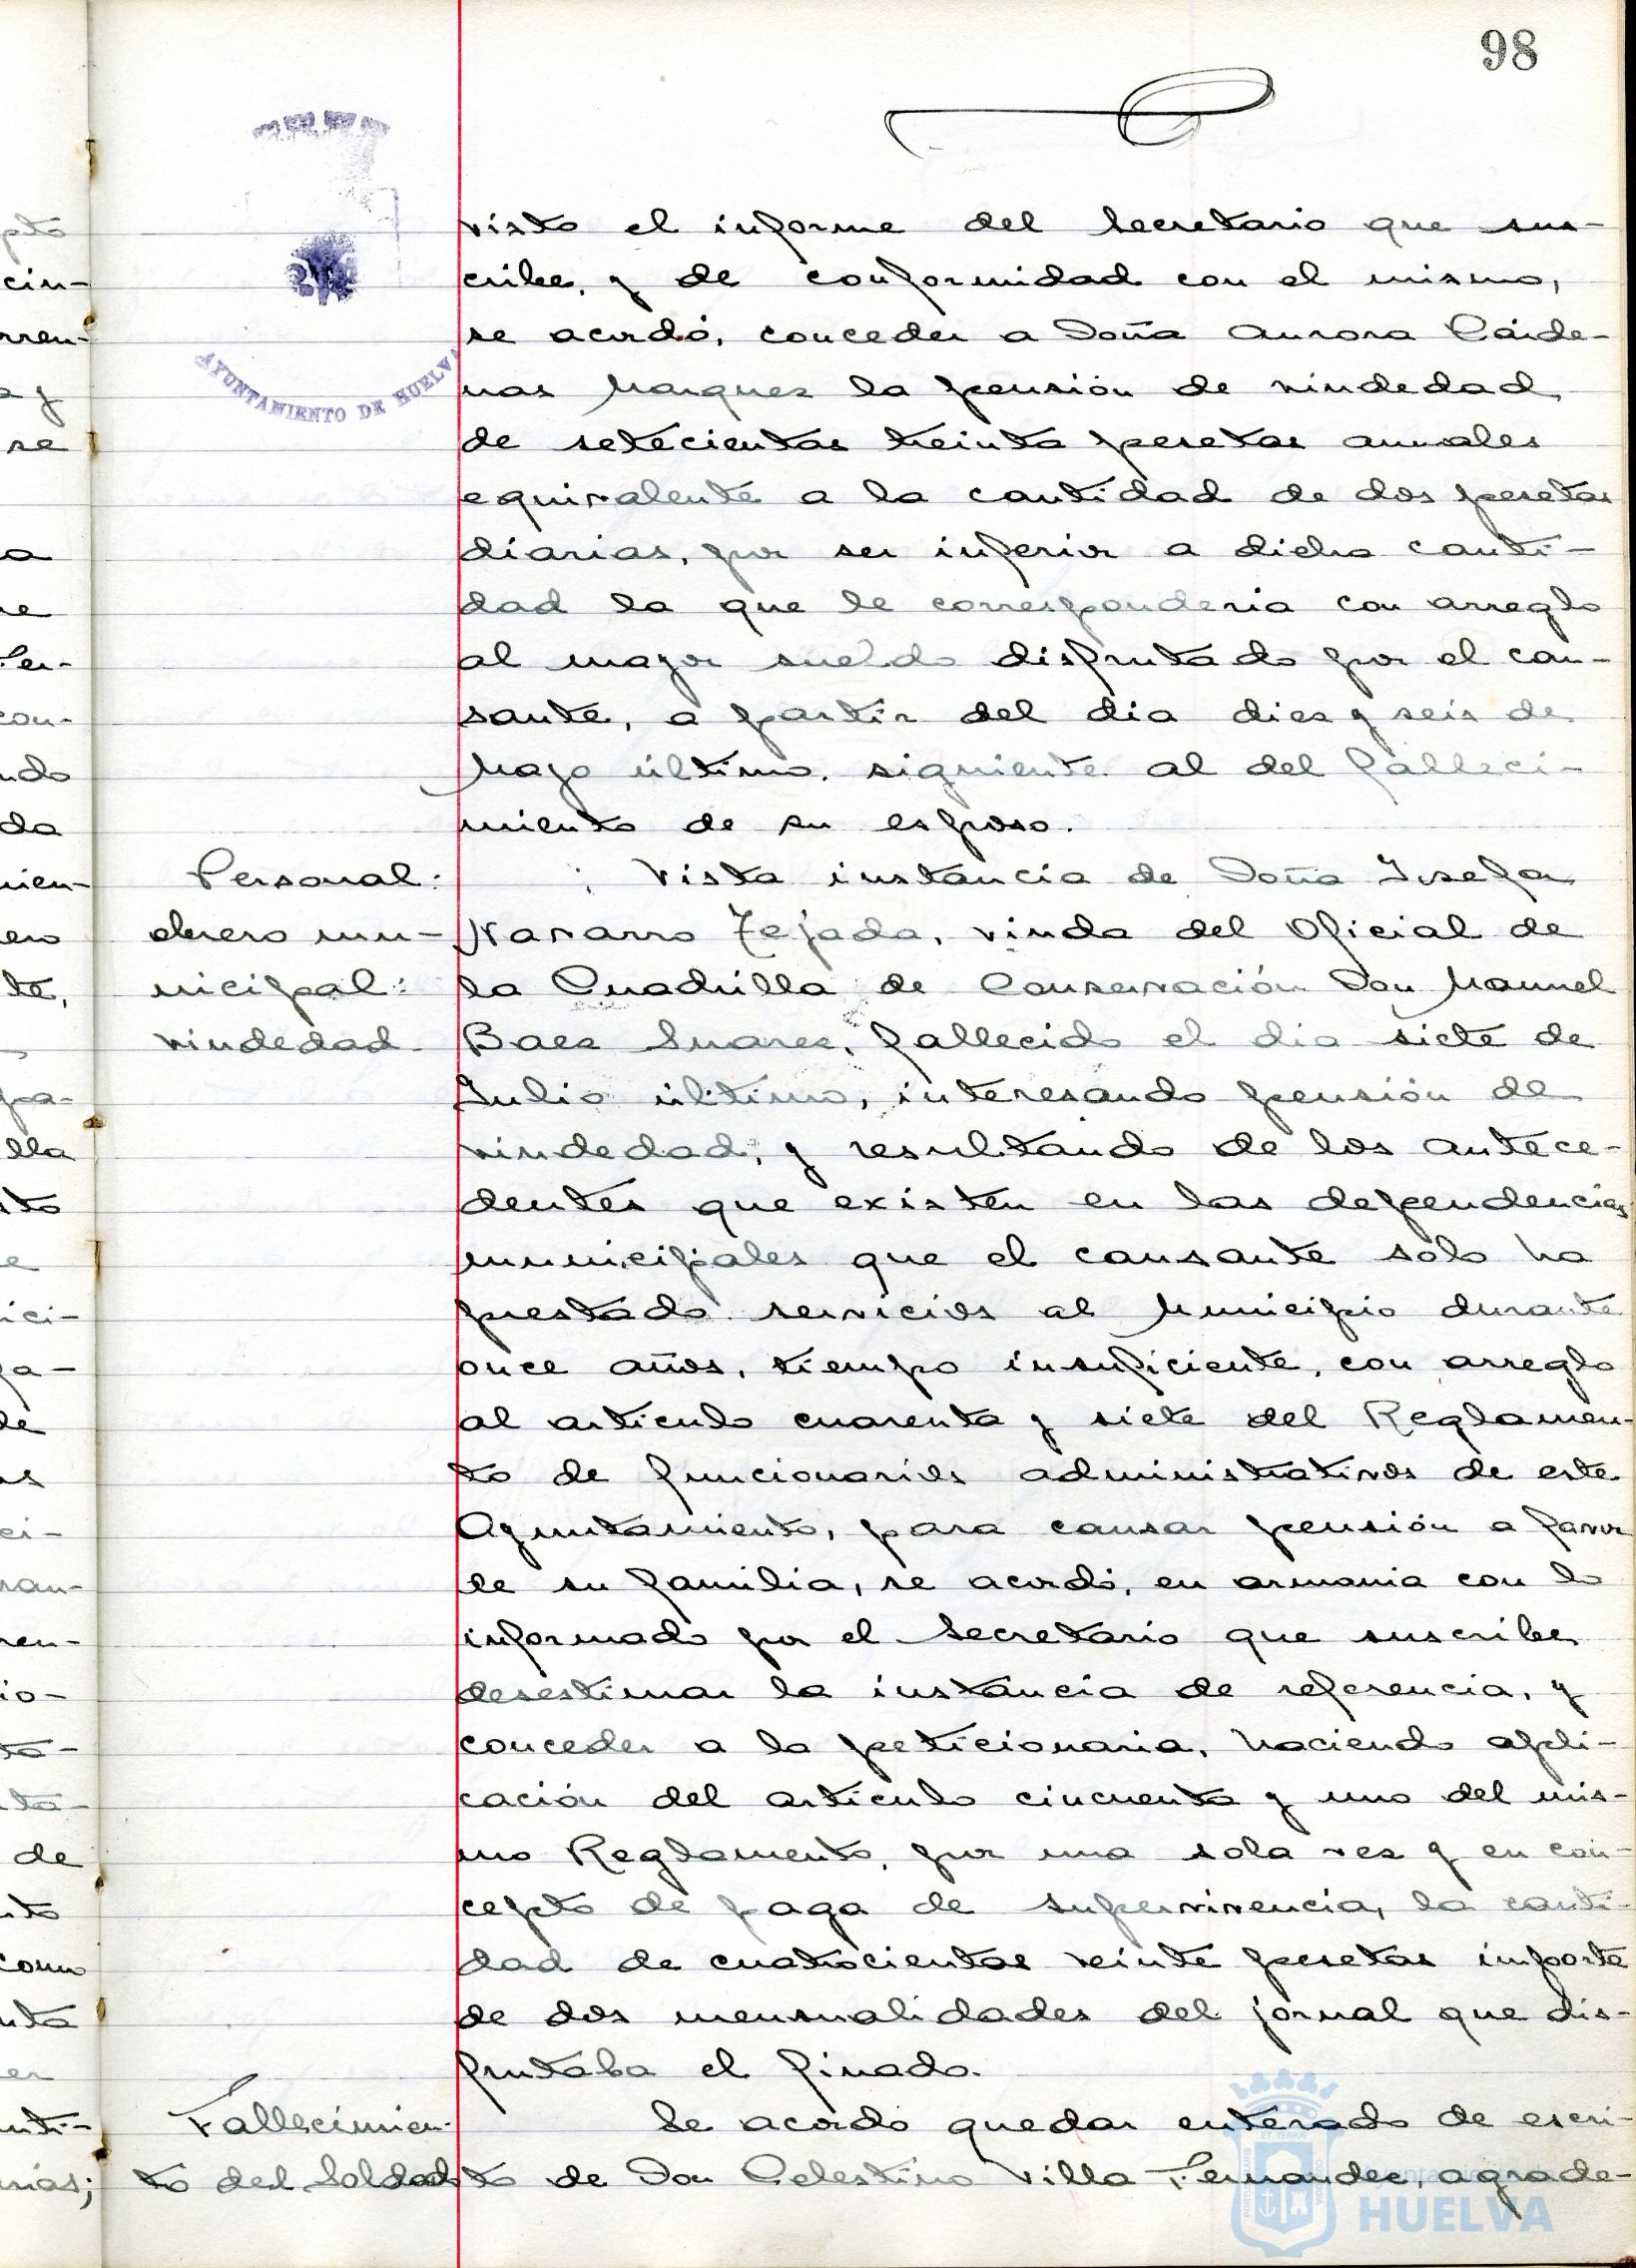 98
AYUNTAMIENTO DE HUELVA
visto el informe del Secretario que sus-
cribe, y de conformidad con el mismo,
se acordó, conceder a Doña Aurora Cárde-
nas Marquez la pensión de viudedad
de setecientas treinta pesetas anuales
equivalente a la cantidad de dos pesetas
diarias, por ser inferior a dicha canti-
dad la que le correspondería con arreglo
al mayor sueldo disfrutado por el cau-
sante, a partir del dia diez y seis de
Mayo último, siguiente al del falleci-
miento de su esposo.
Personal:
obrero mu-
nicipal:
viudedad.
Vista instancia de Doña Josefa
Navarro Tejada, viuda del Oficial de
la Cuadrilla de Conservación Don Manuel
Baez Suarez, fallecido el dia siete de
Julio último, interesando pensión de
viudedad, y resultando de los antece-
dentes que existen en las dependencias
municipales que el causante solo ha
prestado servicios al Municipio durante
once años, tiempo insuficiente, con arreglo
al artículo cuarenta y siete del Reglamen-
to de funcionarios administrativos de este
Ayuntamiento, para causar pensión a favor
de su familia, se acordó, en armonia con lo
informado por el Secretario que suscribe,
desestimar la instancia de referencia, y
conceder a la peticionaria, haciendo apli-
cación del artículo cincuenta y uno del mis-
mo Reglamento, por una sola vez y en con-
cepto de paga de supervivencia, la canti-
dad de cuatrocientas veinte pesetas importe
de dos mensualidades del jornal que dis-
frutaba el finado.
Fallecimien-
to del Soldado
Se acordó quedar enterado de escri-
to de Don Celestino Villa Fernandez, agrade-
HUELVA